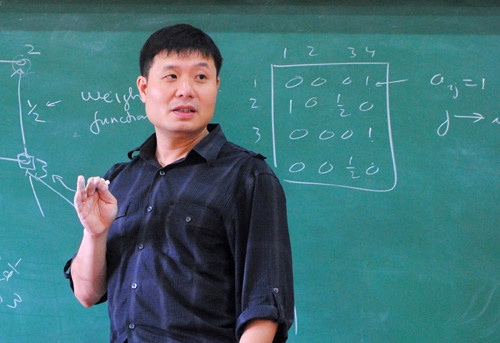 2
1/2
Weigh
function
3
1 2 3 4
1 0 0 0 1
2 1 0 1/2 0
3 0 0 0 1
0 0 1/2 0
a_ij = 1
j →
3